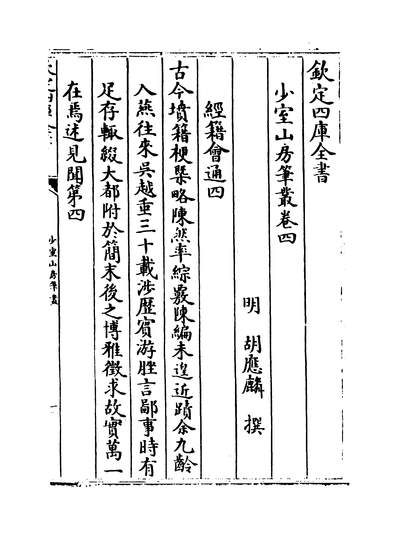 欽定四庫全書
少室山房筆叢卷四
明 胡應麟 撰
經籍會通四
古今墳籍梗槩略陳然率綜覈陳編未遑近蹟余九齡
入燕往來吳越重三十載涉歴賓游脞言鄙事時有
足存輒綴大都附於簡末後之博雅徵求故實萬一
在焉述見聞第四
少室山房筆叢
一